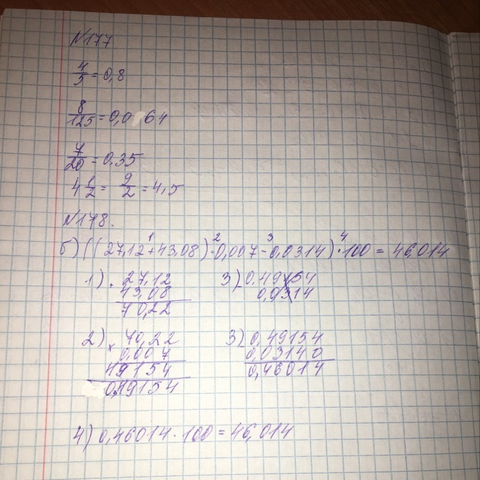 №177
4/5 = 0,8
8/125 = 0,0 64
7/20 = 0.35
4 1/2 = 9/2 = 4,5
№178.
б) ((27,12 + 43,08) · 0,007 - 0,0314) · 100 = 46,014
1 2 3 4
1) 27,12
43,08
70,22
3) 0.49154
0,0314
2) × 70,22
0,007
49154
0,49154
3) 0,49154
0,03140
0,46014
4) 0,46014 · 100 = 46,014